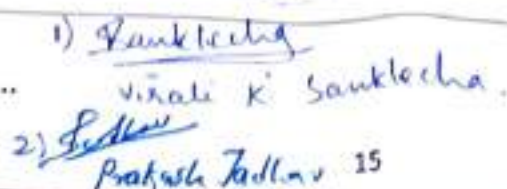 1) Sanklecha
.. Virali K Sanklecha.
2)
Prakash Jadhav 15